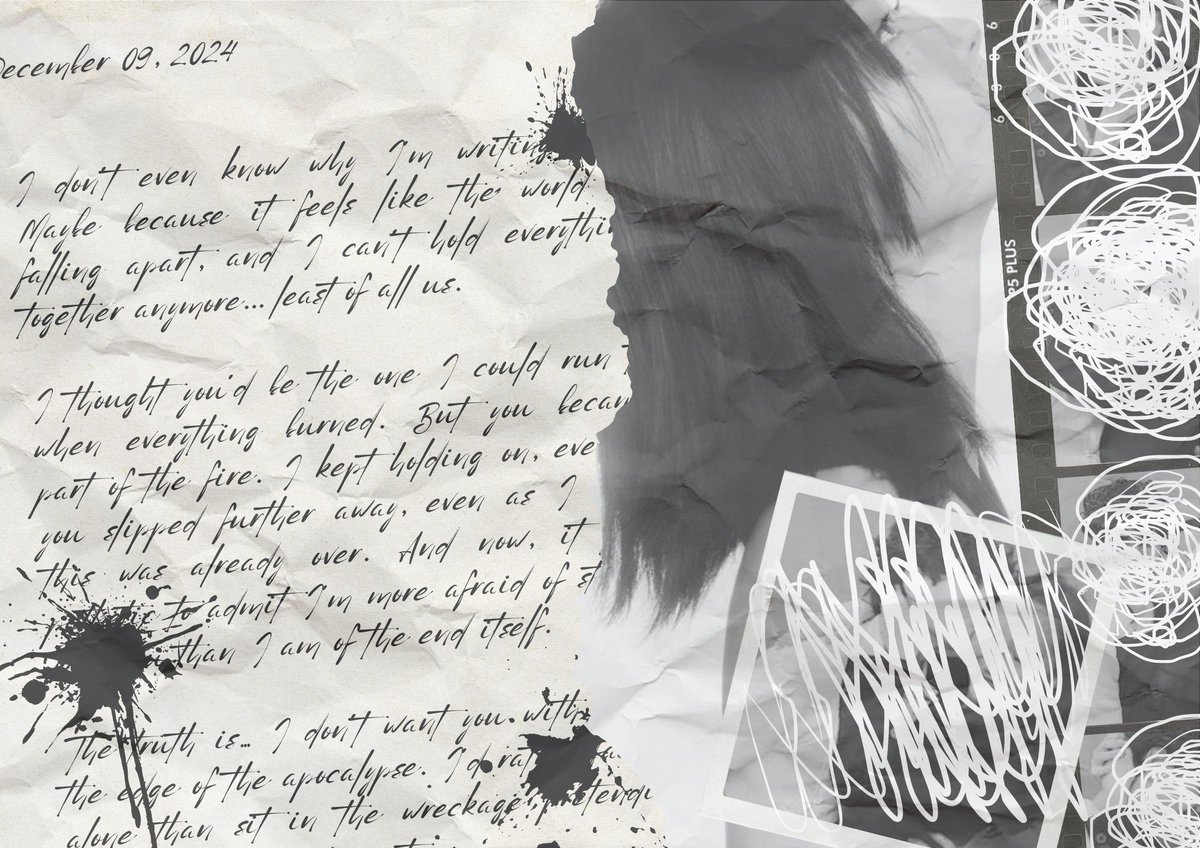 December 09, 2024
I don't even know why I'm writing
Maybe because it feels like the world
falling apart, and I can't hold everythin
together anymore... least of all us.
I thought you'd be the one I could run
when everything burned. But you becam
part of the fire. I kept holding on, eve
you slipped further away, even as I
this was already over. And now, it
to admit I'm more afraid of st
than I am of the end itself.
The truth is... I don't want you with
the edge of the apocalypse. I'd rat
alone than sit in the wreckage, pretendi
6 3 8 6
P5 PLUS